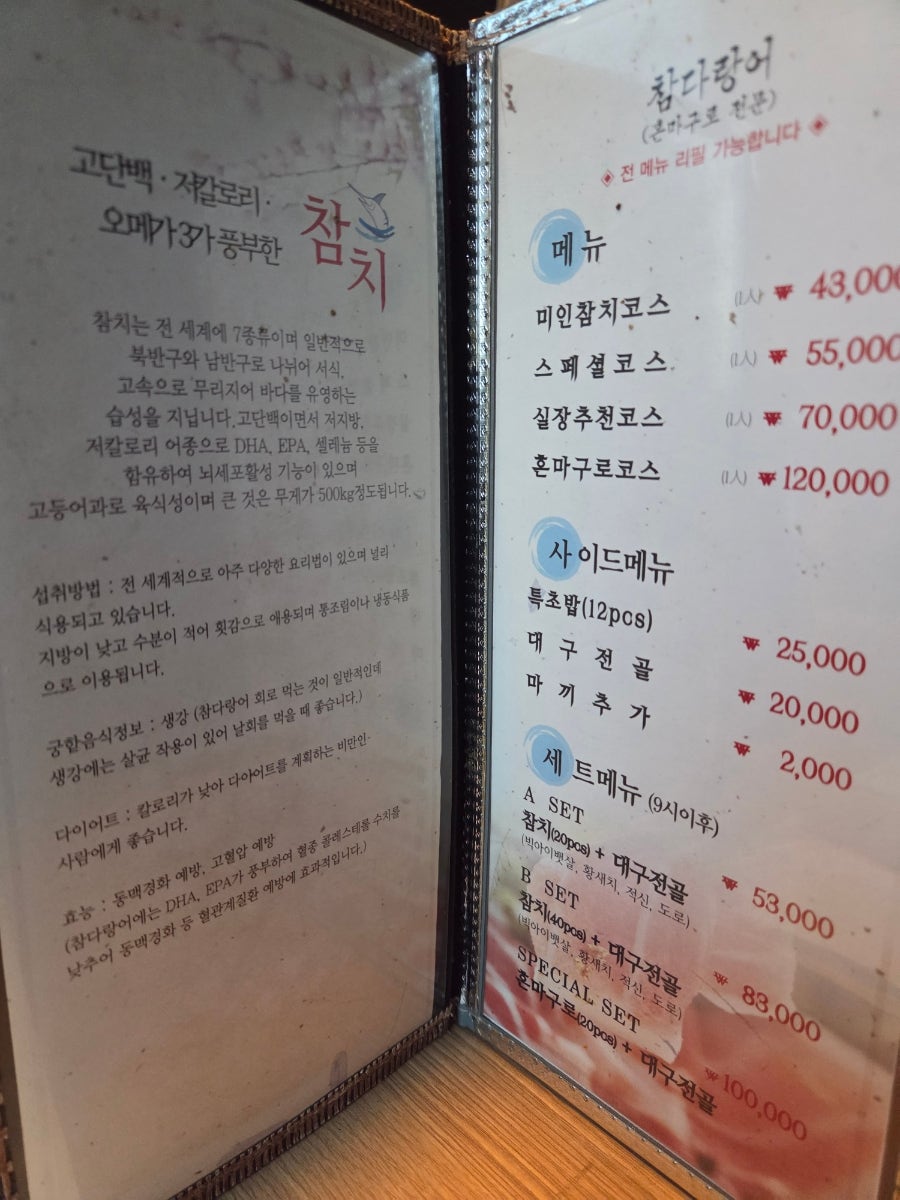 고단백 · 저칼로리 ·
오메가3가 풍부한
참치
참치는 전 세계에 7종류이며 일반적으로
북반구와 남반구로 나뉘어 서식,
고속으로 무리지어 바다를 유영하는
습성을 지닙니다.고단백이면서 저지방,
저칼로리 어종으로 DHA, EPA, 셀레늄 등을
함유하여 뇌세포활성 기능이 있으며
고등어과로 육식성이며 큰 것은 무게가 500kg정도됩니다.
섭취방법 : 전 세계적으로 아주 다양한 요리법이 있으며 널리
식용되고 있습니다.
지방이 낮고 수분이 적어 횟감으로 애용되며 통조림이나 냉동식품
으로 이용됩니다.
궁합음식정보 : 생강 (참다랑어 회로 먹는 것이 일반적인데
생강에는 살균 작용이 있어 날회를 먹을 때 좋습니다.)
다이어트 : 칼로리가 낮아 다아어트를 계획하는 비만인·
사람에게 좋습니다.
효능 : 동맥경화 예방, 고혈압 예방
(참다랑어에는 DHA, EPA가 풍부하여 혈중 콜레스테롤 수치를
낮추어 동맥경화 등 혈관계질환 예방에 효과적입니다.)
참다랑어
(혼마구로 전문)
◈ 전 메뉴 리필 가능합니다 ◈
메뉴
미인참치코스 (1人) ₩ 43,000
스페셜코스 (1人) ₩ 55,000
실장추천코스 (1人) ₩ 70,000
혼마구로코스 (1人) ₩ 120,000
사이드메뉴
특초밥(12pcs) ₩ 25,000
대구전골 ₩ 20,000
마끼추가 ₩ 2,000
세트메뉴 (9시이후)
A SET
참치(20pcs) + 대구전골 ₩ 53,000
(빅아이뱃살, 황새치, 적신, 도로)
B SET
참치(40pcs) + 대구전골 ₩ 83,000
(빅아이뱃살, 황새치, 적신, 도로)
SPECIAL SET
혼마구로(20pcs) + 대구전골 ₩ 100,000